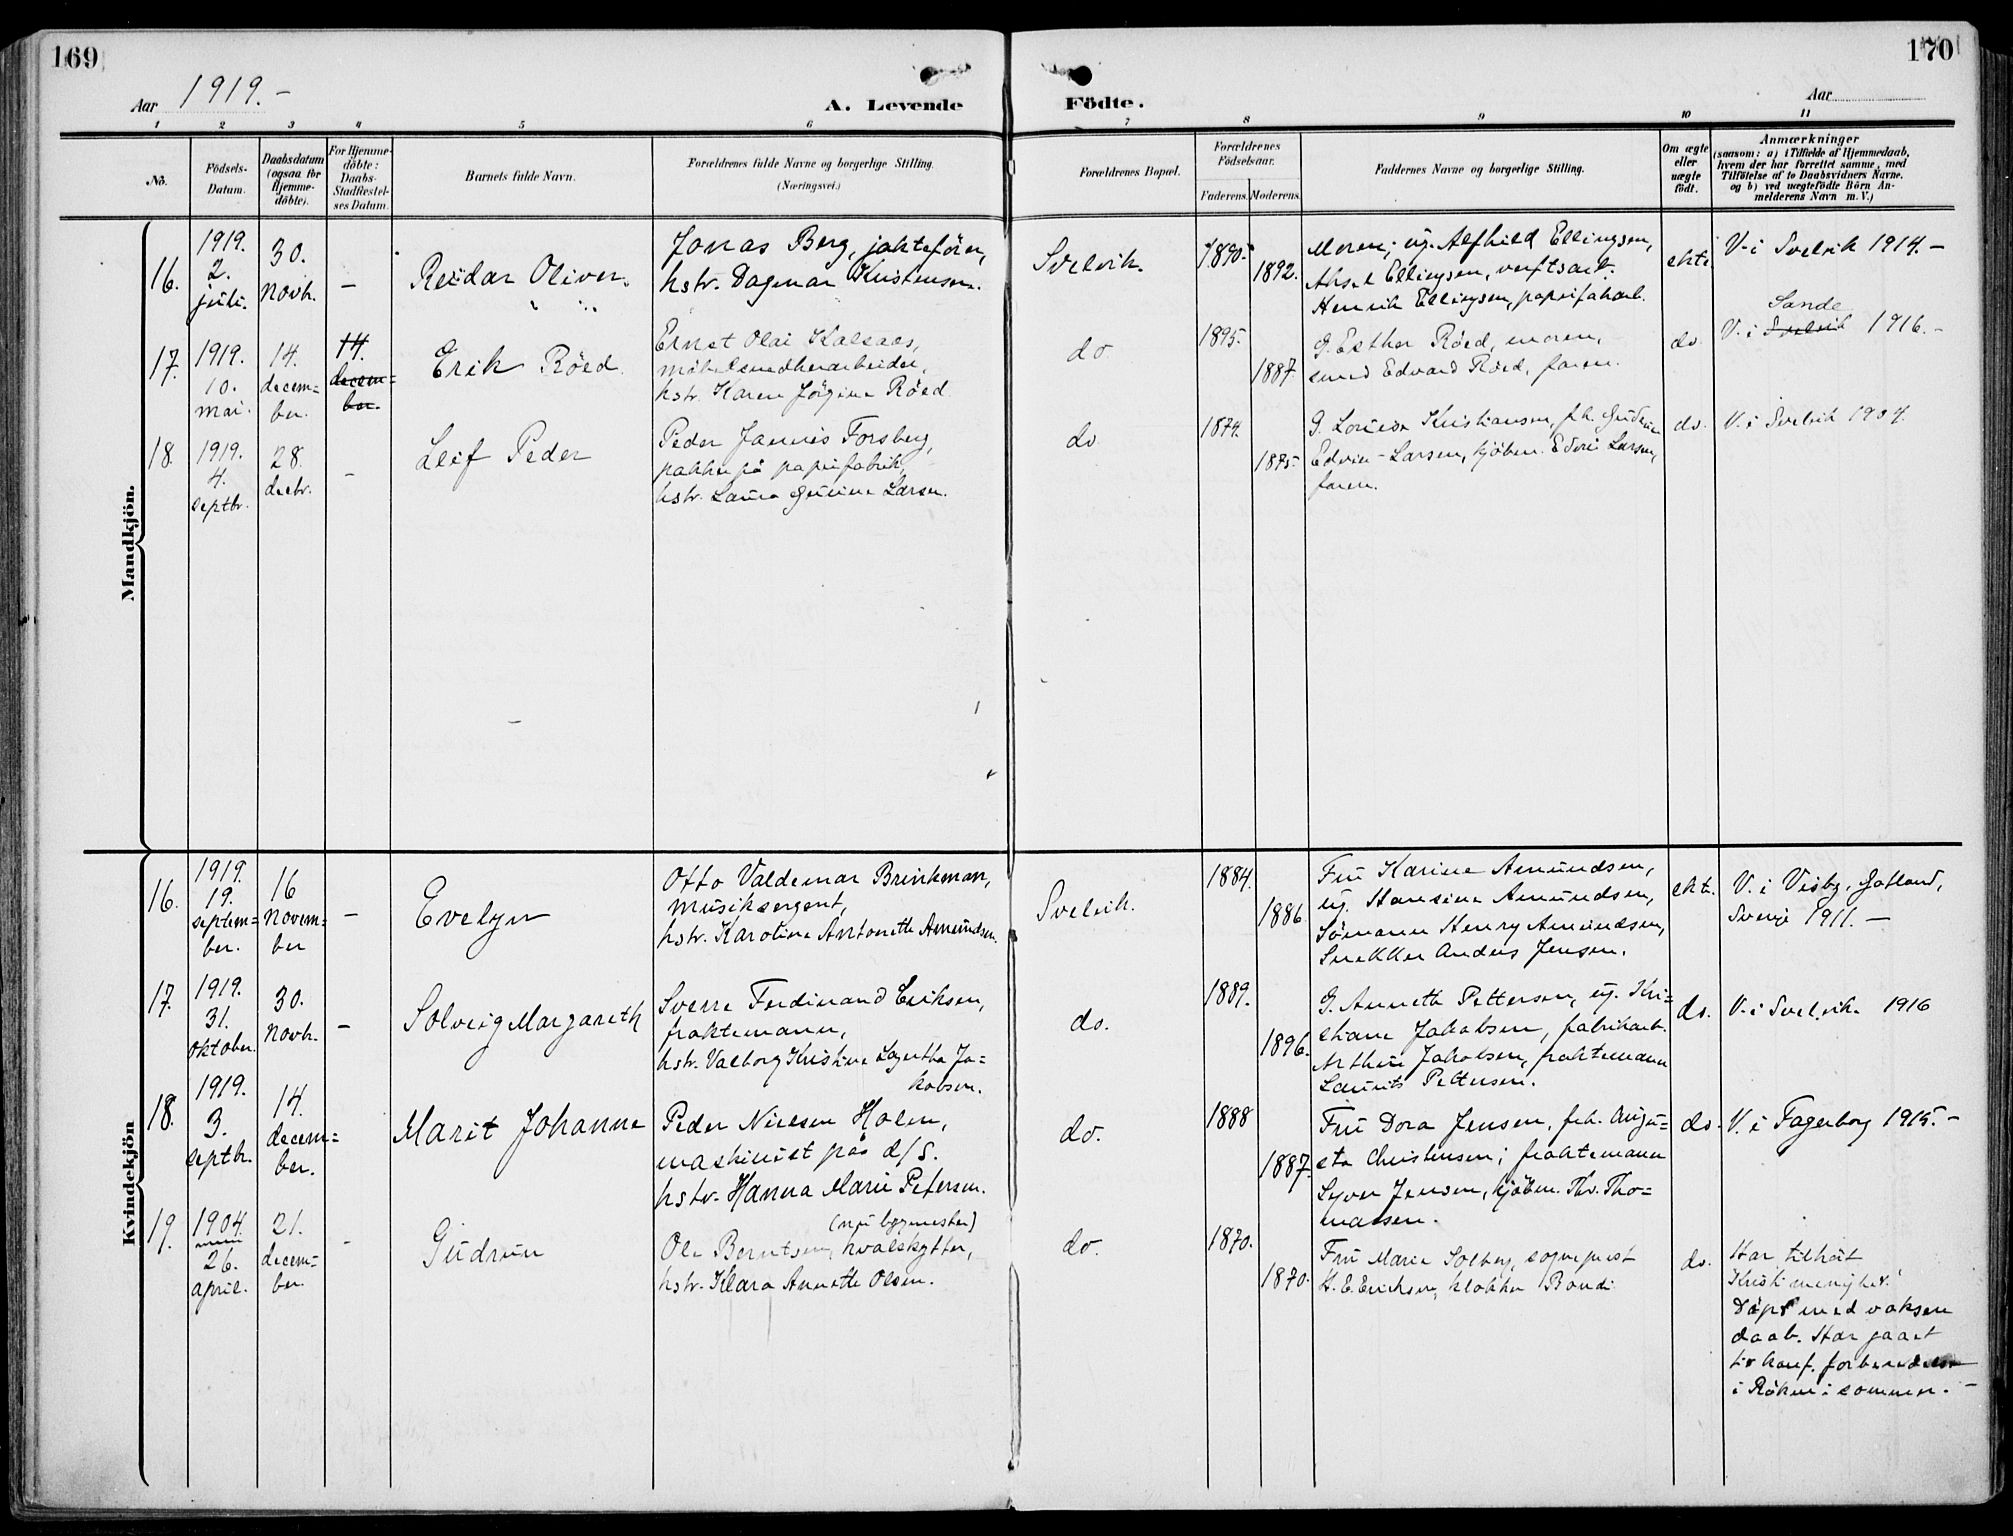 169
170
Aar 1919.-
A. Levende
Födte.
Aar
1 2 3 4 5 6 7 8 9 10 11
No.
Födsels-
Datum.
Daabsdatum
(ogsaa for
Hjemme-
döbte).
For Hjemme-
döbte:
Daabs-
Stadfæstel-
ses Datum.
Barnets fulde Navn.
Forældrenes fulde Navne og borgerlige Stilling.
(Næringsvei.)
Forældrenes Bopæl.
Forældrenes
Födselsaar.
Faderens. Moderens.
Faddernes Navne og borgerlige Stilling.
Om ægte
eller
uægte
födt.
Anmærkninger
(saasom: a) i Tilfælde af Hjemmedaab,
hvem der har forrettet samme, med
Tilföielse af to Daabsvidners Navne.
og b) ved uægtefödte Börn An-
melderens Navn m. V.)
Mandkjön.
16.
1919.
2.
juli.
30.
Novb.
-
Reidar Oliver.
Jonas Berg, jakteförer,
hstr. Dagmar Kristensen.
Svelvik.
1890.
1892.
Moren; ug. Alfhild Ellingsen,
Aksel Ellingsen, verftsarb.
Henrik Ellingsen, papirfabarb.
ekte
V. i Svelvik 1914.-
17.
1919.
10.
mai.
14.
decem=
ber.
14.
decem=
ber.
Erik Röed.
Ernst Olai Kalsaas,
möbelsnedkerarbeider,
hstr. Karen Jörgine Röed
do
1895.
1887
G. Esther Röed, moren,
smed Edvard Röed, faren.
do
Sande
V. i Svelvik 1916.-
18.
1919.
4.
septbr.
28.
decbr.
-
Leif Peder
Peder Jannis Forsberg,
pakker på papirfabrik,
hstr. Laura Gurine Larsen.
do
1874.
1875
G. Lovise Kristiansen, frk. Gudrun
Edvin-Larsen, kjöbm. Edvin Larsen,
faren.
do.
V. i Svelvik 1904.
Kvindekjön
16.
1919.
19.
septem=
ber.
16
Novem=
ber
-
Evelyn
Otto Valdemar Brinkman,
musiksergent,
hstr. Karoline Antonette Amundsen.
Svelvik.
1884.
1886
Fru Karine Amundsen,
ug. Hansine Amundsen,
Sömann Henry Amundsen,
Snekker Anders Jensen.
ekt.
V. i Visby, Gotland,
Sverige 1911.-
17.
1919.
31.
oktober.
30.
Novb.
-
Solveig Margareth
Sverre Ferdinand Eriksen,
fraktemann,
hstr. Valborg Kristine Lagertha Ja=
kobsen.
do.
1889.
1896.
G. Anneth Pettersen, ug. Kri=
stiane Jakobsen, fabrikarb.
Arthur Jakobsen, fraktemann
Laurits Pettersen.
do.
V. i Svelvik. 1916
18.
1919.
3.
septbr.
14.
decem=
ber.
Marit Johanne
Peder Nielsen Holen,
maskinist paa d/S.
hstr. Hanna Marie Petersen.
do.
1888
1887.
Fru Dora Jensen, frk. Augu=
sta Christensen; fraktemann
Syver Jensen, kjöbm. Th. Tho=
massen.
do.
V. i Fagerborg 1915.-
19.
1904.
26.
april.
21.
decem=
ber.
-
Gudrun
(nu bygmester)
Ole Berntsen, hvalskytter,
hstr. Klara Annette Olsen.
do.
1870.
1870.
Fru Marie Solberg, sogneprest
H. E. Erichsen, klokker Bondi
do.
Har tilhört
Kristi menighet.
Döpt med voksen
daab. Har gaaet
til konf. forberedelse
i Röken i sommer.-